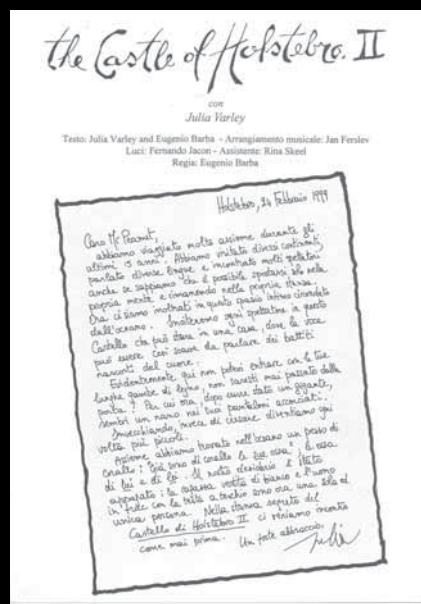 the Castle of Holstebro. II
con
Julia Varley
Testo: Julia Varley and Eugenio Barba - Arrangiamento musicale: Jan Ferslev
Luci: Fernando Jacon - Assistente: Rina Skeel
Regia: Eugenio Barba
Holstebro, 24 Febbraio 1999
Caro Mr Peanut,
abbiamo viaggiato molto assieme durante gli
ultimi 15 anni. Abbiamo visitato diversi continenti,
parlato diverse lingue e incontrato molti spettatori
anche se sappiamo che è possibile spostarsi solo nella
propria mente e rimanendo nella propria stanza.
Ora ci siamo inoltrati in questo spazio intimo circondato
dall'oceano. Inviteremo ogni spettatore in questo
Castello che può stare in una casa, dove la voce
può essere così soave da parlare dei battiti
nascosti del cuore.
Evidentemente qui non potevi entrare con le tue
lunghe gambe di legno, non saresti mai passato dalla
porta! Per cui ora, dopo essere stato un gigante,
sembri un nano nei tuoi pantaloni accorciati.
Invecchiando, invece di crescere diventiamo ogni
volta più piccoli.
Assieme abbiamo trovato nell'oceano un pezzo di
corallo: "Già sono di corallo le sue ossa", le ossa
di lei e di lui. Il nostro desiderio è stato
appagato: la ragazza vestita di bianco e l'uomo
in frac con la testa a teschio sono ora una sola ed
unica persona. Nella stanza segreta del
Castello di Holstebro II ci veniamo incontro
come mai prima.
Un forte abbraccio,
Julia